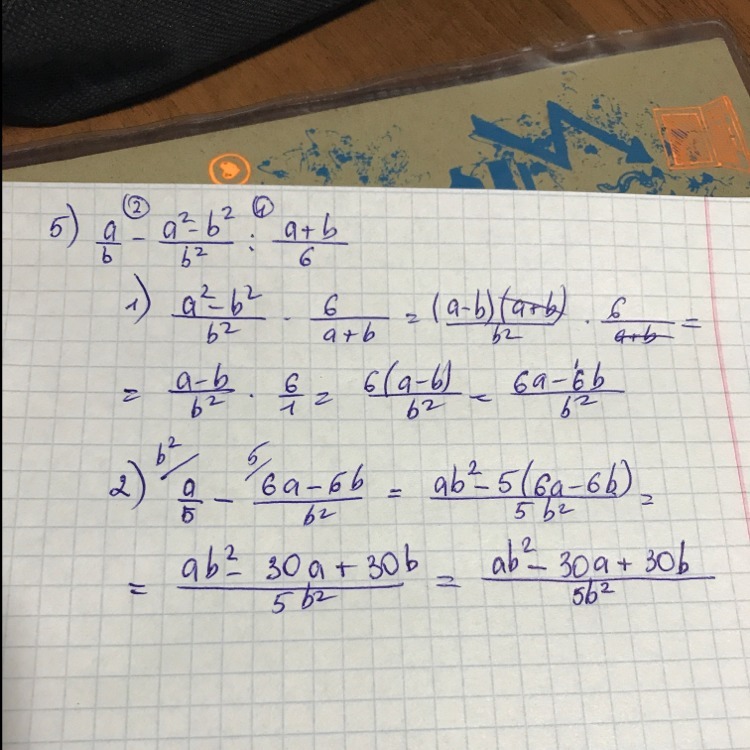 5) a/b ② - (a² - b²)/b² ① : (a+b)/6
1) (a² - b²)/b² · 6/(a+b) = (a-b)(a+b)/b² · 6/(a+b) =
= (a-b)/b² · 6/1 = 6(a-b)/b² = (6a-6b)/b²
2) b²/ a/5 - 5/ (6a-6b)/b² = (ab² - 5(6a-6b))/5b² =
= (ab² - 30a + 30b)/5b² = (ab² - 30a + 30b)/5b²